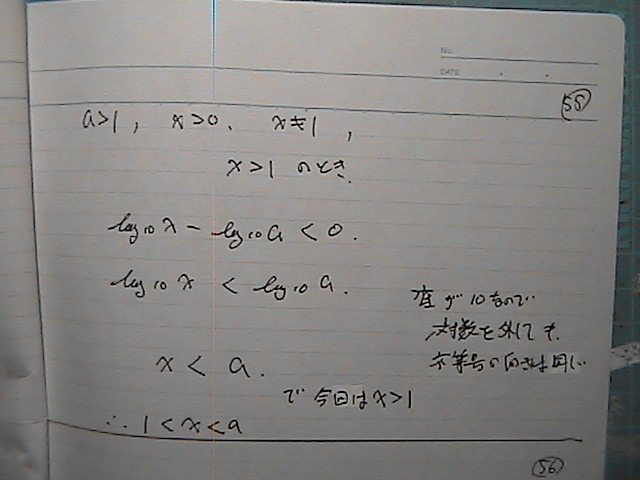 No.
DATE
55
a>1, x>0. x≠1,
x>1 のとき.
log10 x - log10 a < 0.
log10 x < log10 a.
底が10なので
対数を外しても.
不等号の向きは同じ..
x < a.
で 今回は x>1
∴ 1<x<a
56